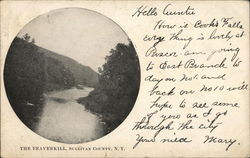 Hello Auntie
How is Cook's Falls
every thing is lovely at
am going
to East Branch to
day on No1 and
back on No10 will
hope to see some
of you as I go
through the city
Your niece Mary.
THE BEAVERKILL, SULLIVAN COUNTY, N. Y.